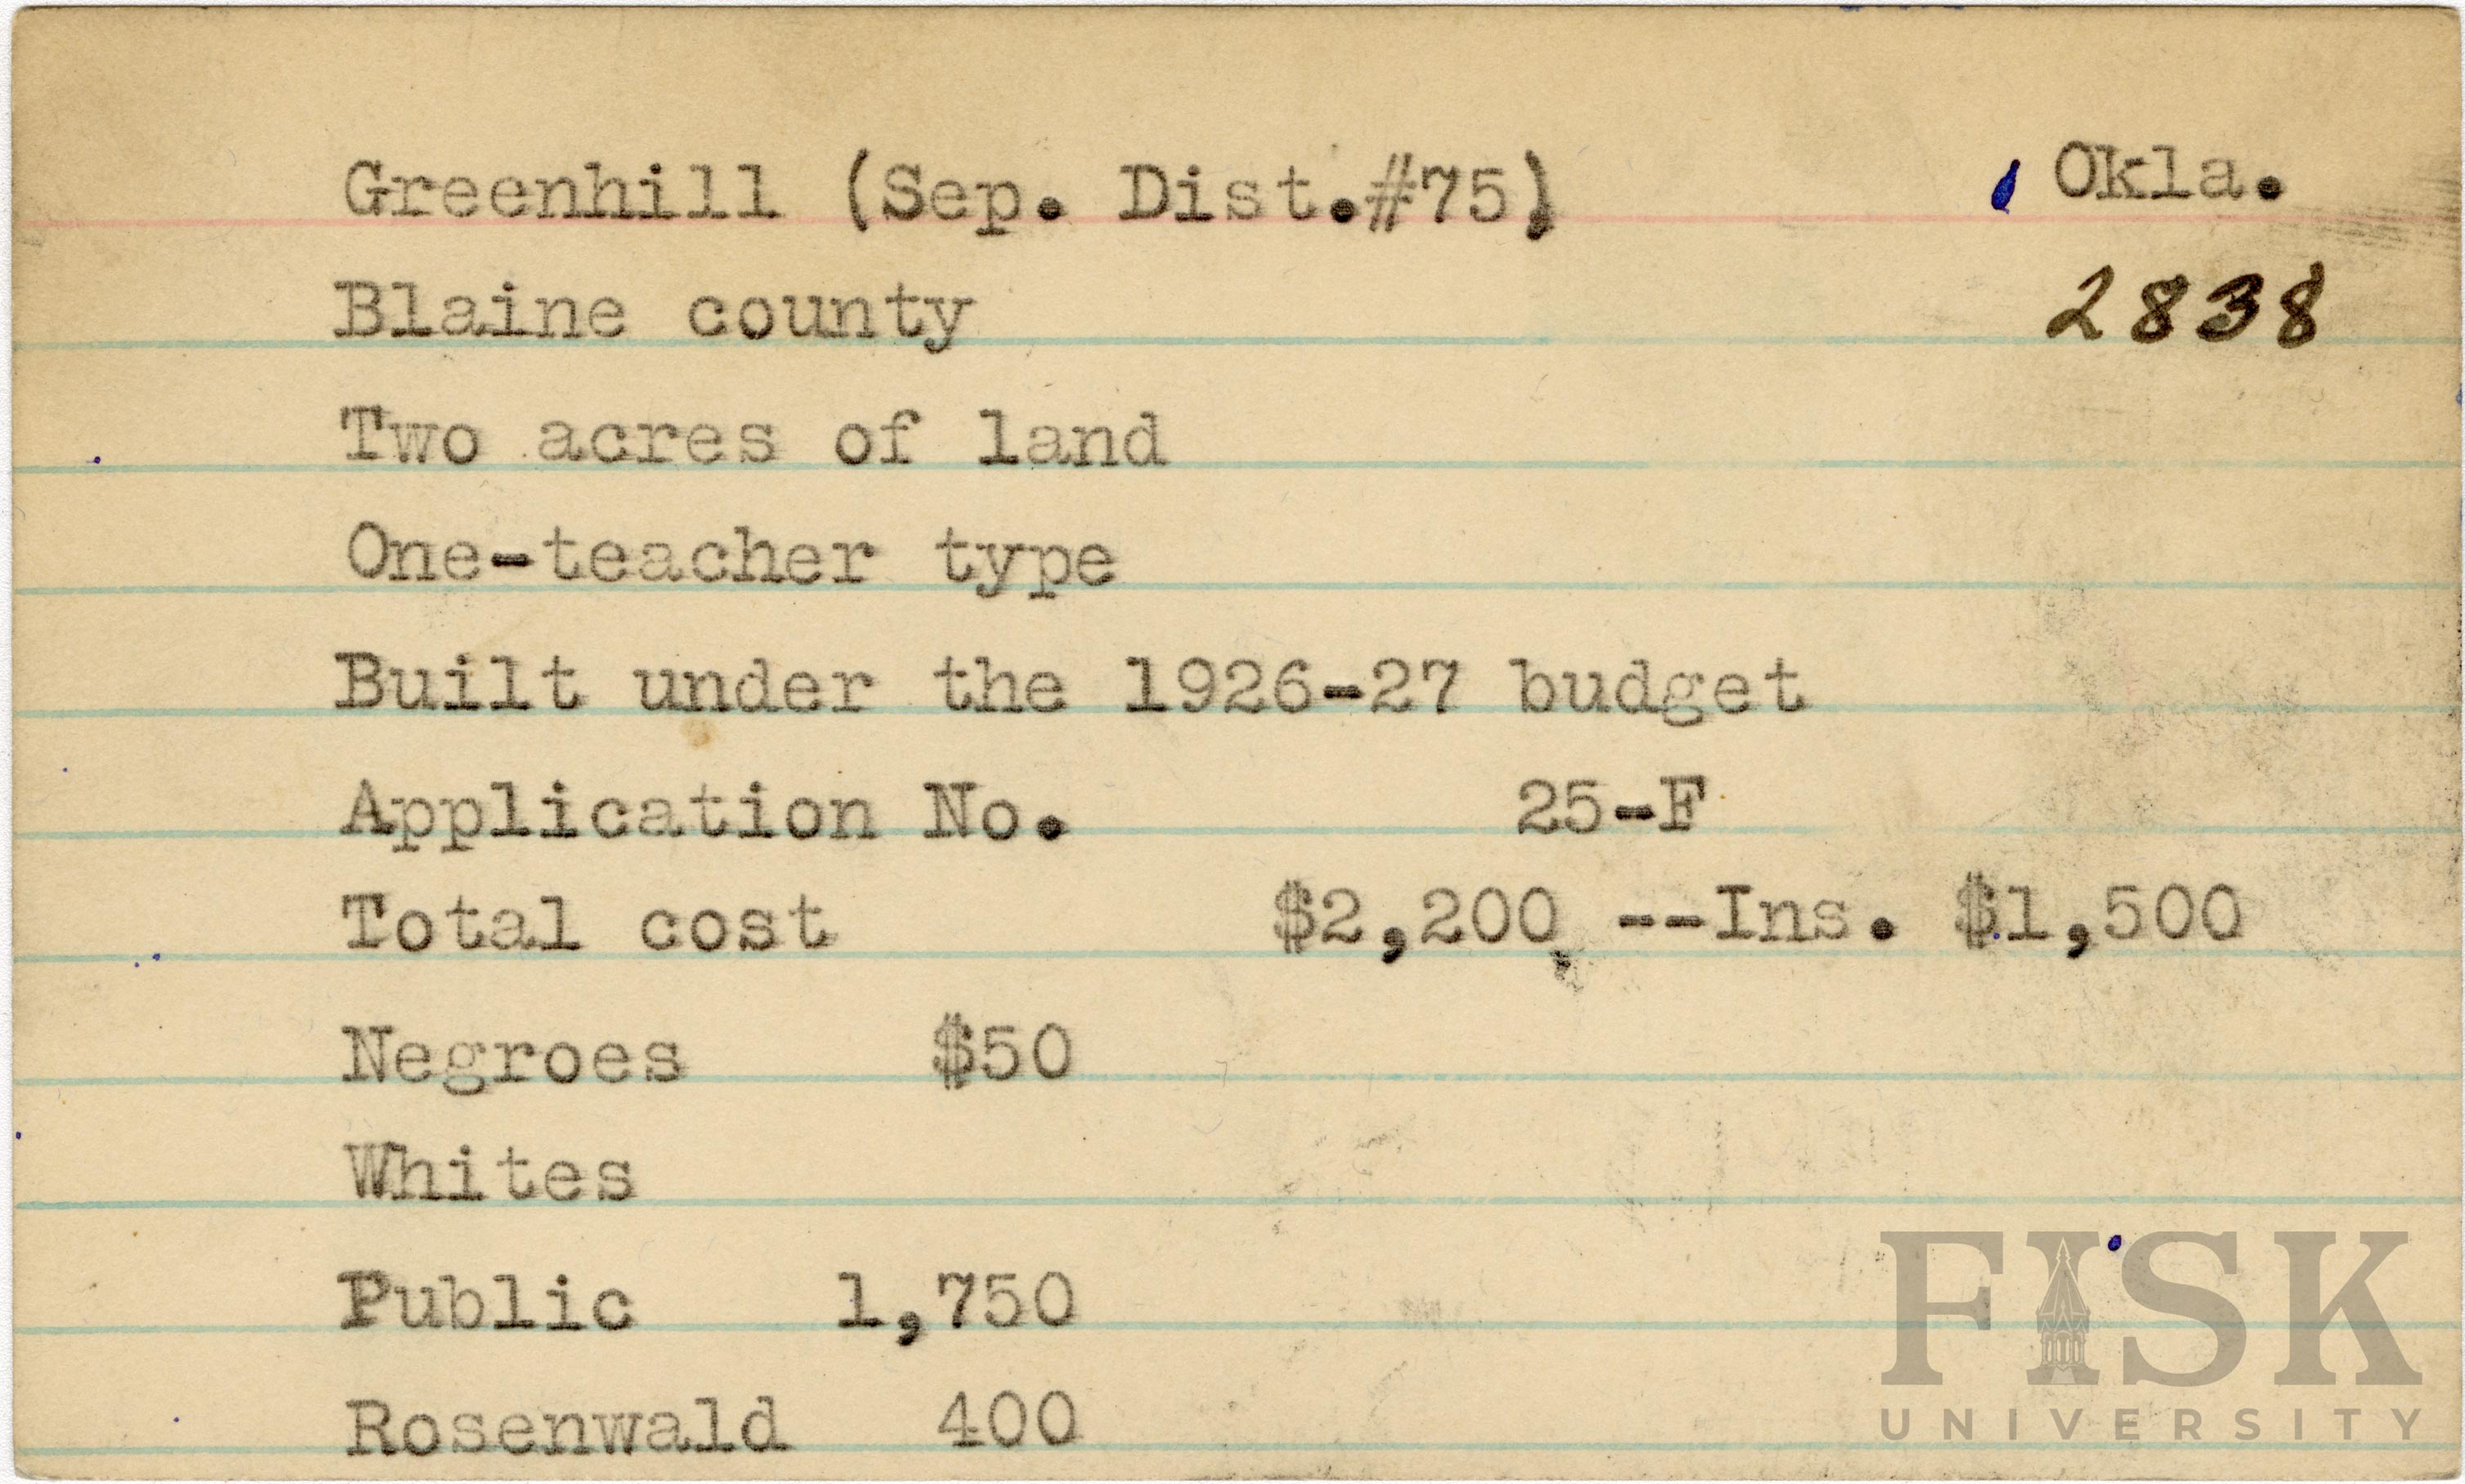 Greenhill (Sep. Dist.#75) Okla.
Blaine county 2838
Two acres of land
One-teacher type
Built under the 1926-27 budget
Application No. 25-F
Total cost $2,200, --Ins. $1,500
Negroes $50
Whites
Public 1,750
Rosenwald 400
FISK
UNIVERSITY